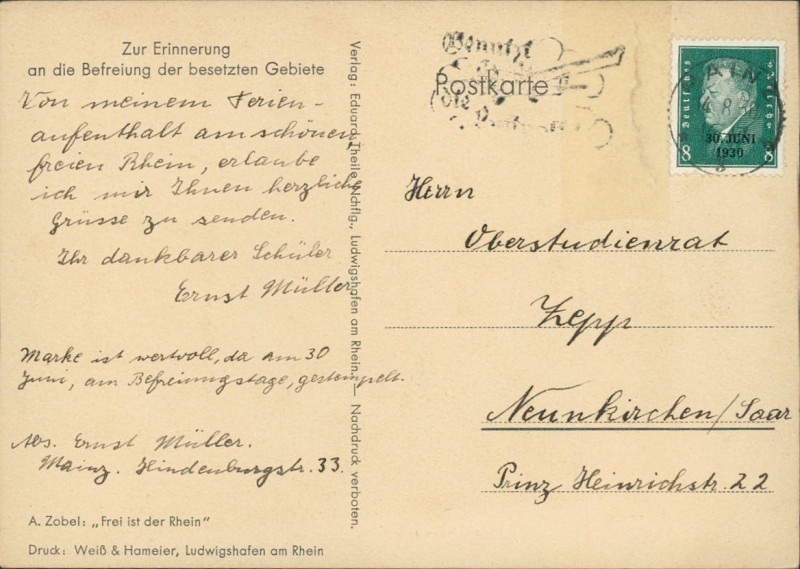 Zur Erinnerung
an die Befreiung der besetzten Gebiete
Von meinem Ferien-
aufenthalt am schönen,
freien Rhein, erlaube
ich mir Ihnen herzliche
Grüsse zu senden.
Ihr dankbarer Schüler
Ernst Müller
Marke ist wertvoll, da am 30
Juni, am Befreiungstage, gestempelt.
Abs. Ernst Müller.
Mainz. Hindenburgstr. 33.
A. Zobel: „Frei ist der Rhein"
Druck: Weiß & Hameier, Ludwigshafen am Rhein
Verlag: Eduard Theile Nchflg., Ludwigshafen am Rhein. — Nachdruck verboten.
Benutzt
die
Postkarte
Deutsches Reich
8 8
30. JUNI
1930
Herrn
Oberstudienrat
Zepp
Neunkirchen/Saar
Prinz Heinrichstr. 22